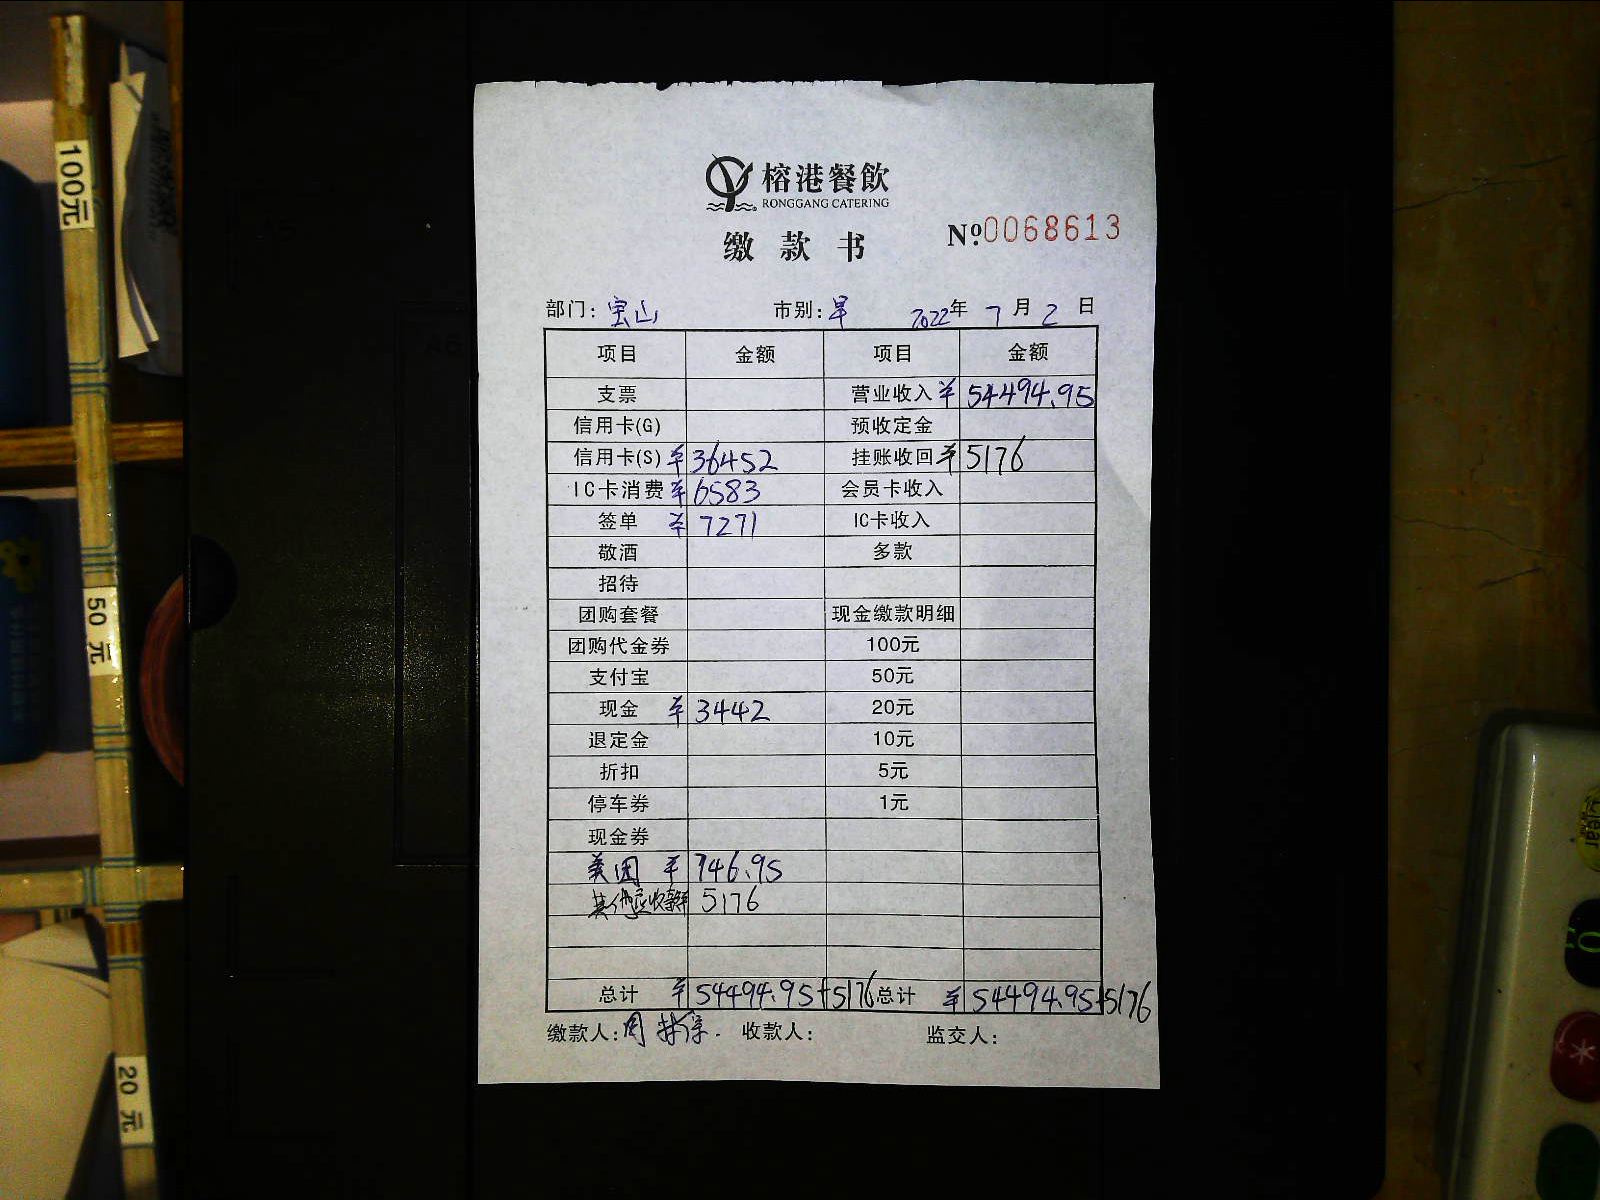 榕港餐飲
RONGGANG CATERING
缴款书
Nº:0068613
部门:宝山 市别:早 2022年7月2日
项目 金额 项目 金额
支票 营业收入 ¥54494.95
信用卡(G) 预收定金
信用卡(S) ¥36452 挂账收回 ¥5176
IC卡消费 ¥6583 会员卡收入
签单 ¥7271 IC卡收入
敬酒 多款
招待
团购套餐 现金缴款明细
团购代金券 100元
支付宝 50元
现金 ¥3442 20元
退定金 10元
折扣 5元
停车券 1元
现金券
美团 ¥746.95
其他应收款 ¥5176
总计 ¥54494.95+5176 总计 ¥54494.95+5176
缴款人:周 收款人: 监交人:
100元
50元
20元